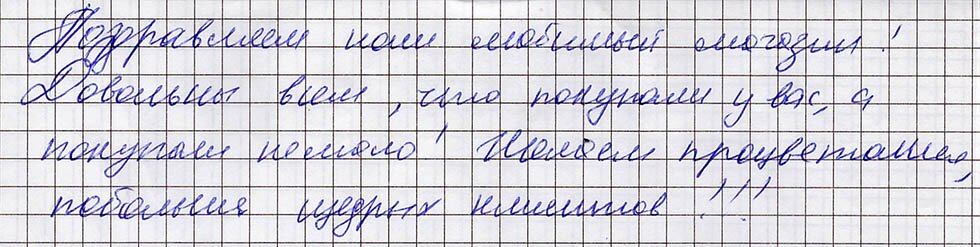 Поздравляем наш любимый магазин!
Довольны всем, что покупали у вас, а
покупали немало! Желаем процветания,
побольше щедрых клиентов!!!